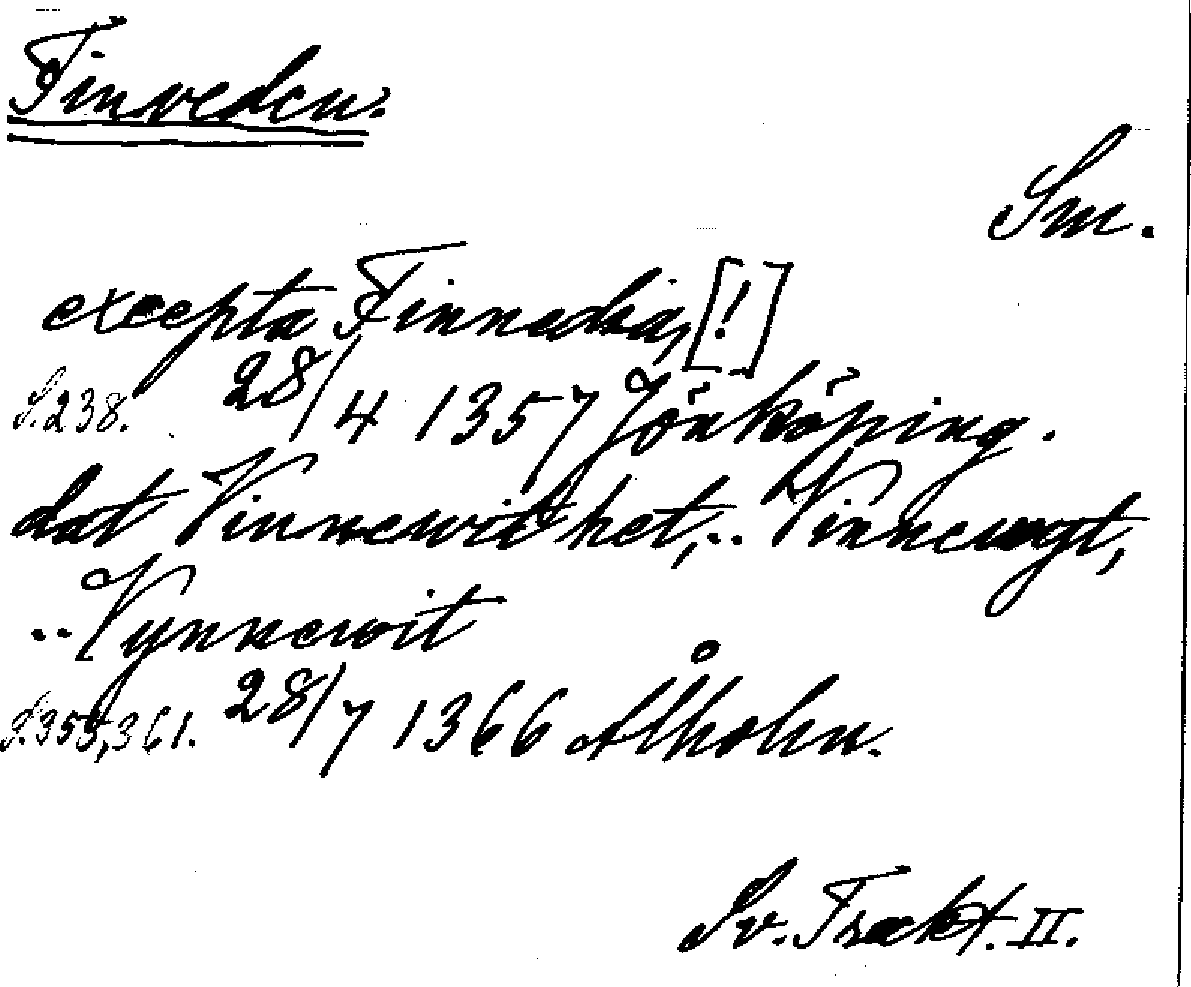 Finveden.
Sm.
excepta Finnedia, [!]
S. 238. 28/4 1357 Jönköping.
dat Vinnewit het, .. Vinnewyt,
.. Vynnewit
S. 353, 361. 28/7 1366 Ålholm.
Sv. Trakt. II.